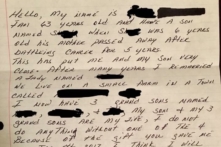 HELLO, MY NAME IS
I AM 63 YEARS OLD AND HAVE A SON
NAMED WHEN WAS 6 YEARS
OLD HIS MOTHER PASSED AWAY AFTER
BATTLING CANCER FOR 3 YEARS
THIS HAS PUT ME AND MY SON VERY
CLOSE. AFTER MANY YEARS I REMARRIED
A LADY NAMED
WE LIVE ON A SMALL FARM IN A TOWN
CALLED
I NOW HAVE 3 GRAND SONS NAMED
MY SON & MY 3
GRAND SONS ARE MY LIFE, I DO NOT
DO ANYTHING WITHOUT ONE OF THE 4
BECAUSE OF YOU GAVE ME
THINK WELL